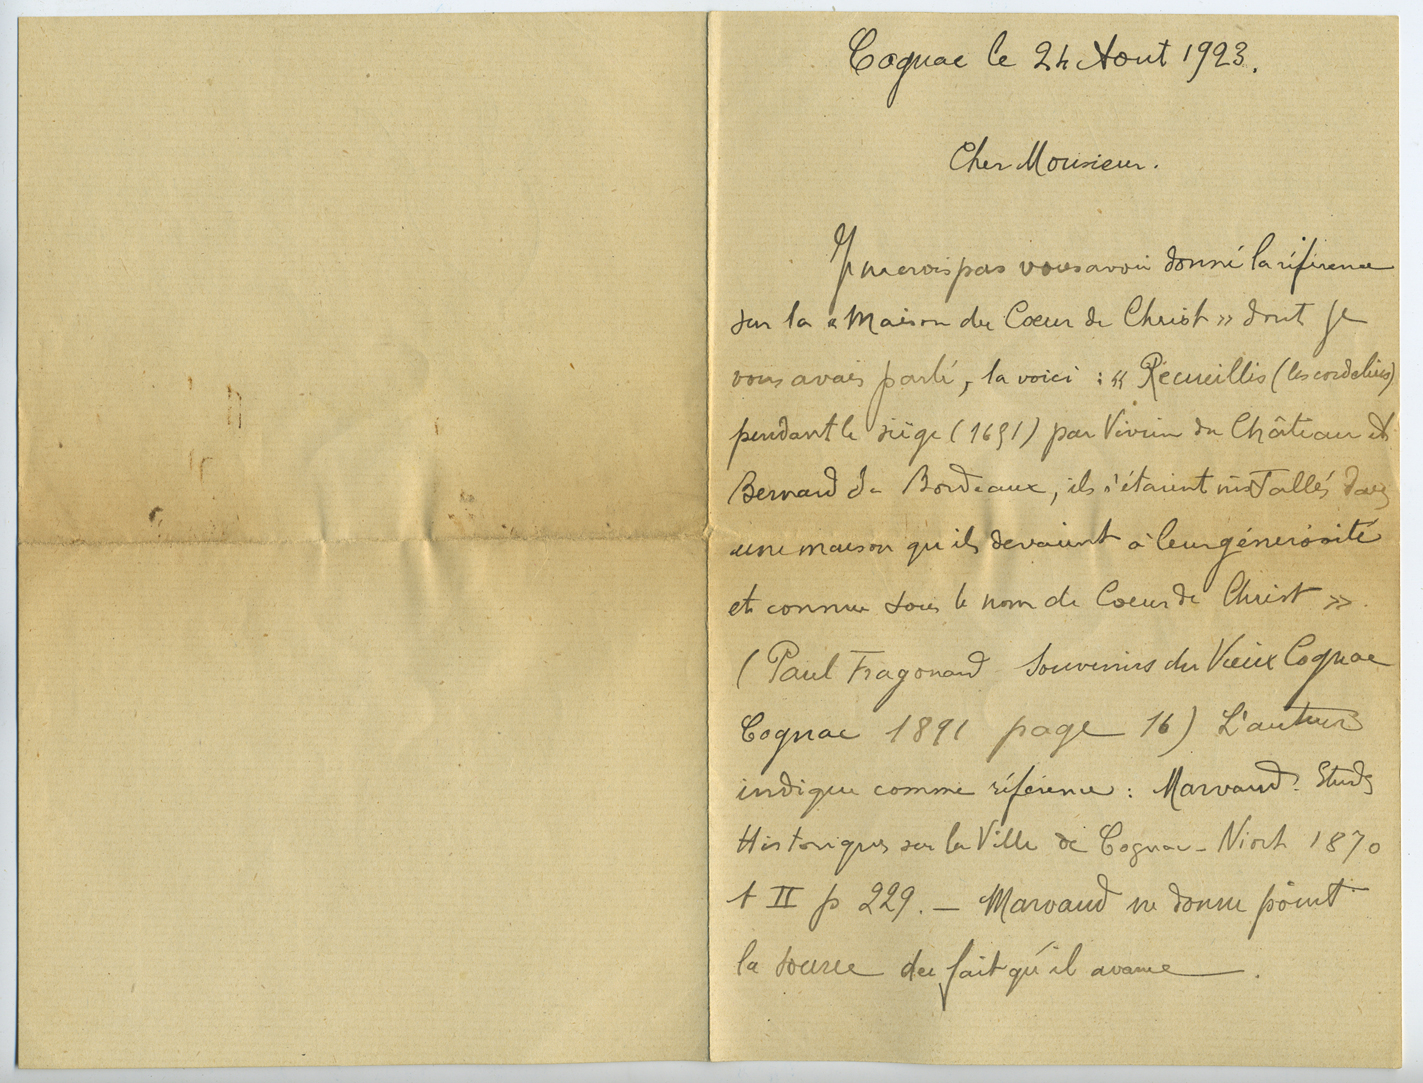 Cognac le 24 Aout 1923.
Cher Monsieur.
Je ne crois pas vous avoir donné la référence
sur la « Maison du Coeur de Christ » dont je
vous avais parlé, la voici : « Recueillis (les cordeliers)
pendant le siège (1651) par Vivien du Château et
Bernard de Bordeaux, ils s'étaient installés dans
une maison qu'ils devaient à leur générosité
et connue sous le nom de Coeur de Christ ».
(Paul Fragonard Souvenirs du Vieux Cognac
Cognac 1891 page 16) L'auteur
indique comme référence : Marvaud. Etudes
Historiques sur la Ville de Cognac - Niort 1870
t II p 229. — Marvaud ne donne point
la source du fait qu'il avance .